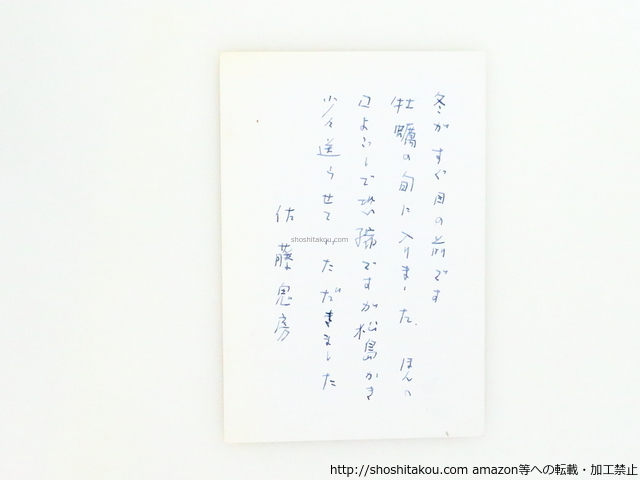 冬がすぐ目の前です
牡蠣の旬に入りました。ほんの
口よごしで恐縮ですが松島かき
少々送らせていただきました
佐藤鬼房
shoshitakou.com
http://shoshitakou.com amazon等への転載・加工禁止